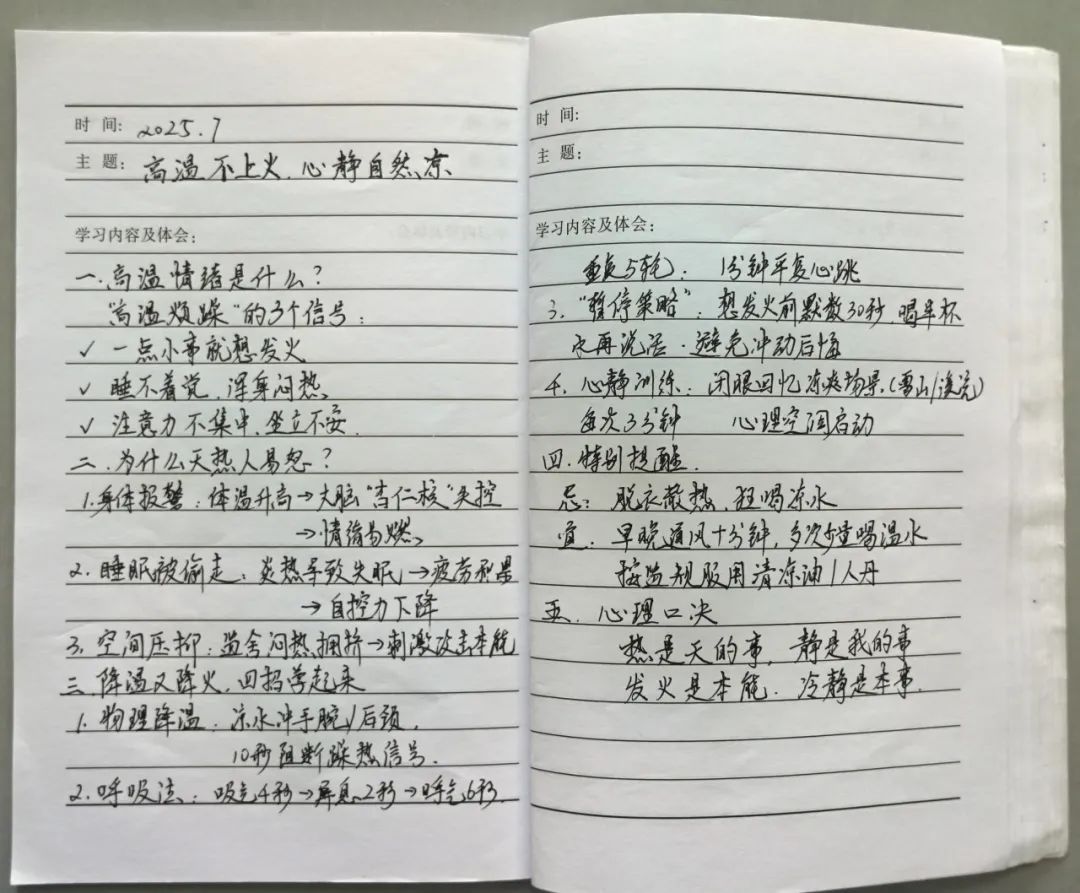 时 间： 2025.7
主 题： 高温不上火.心静自然凉
学习内容及体会：
一.高温情绪是什么？
“高温烦躁”的3个信号：
✓ 一点小事就想发火
✓ 睡不着觉，浑身闷热
✓ 注意力不集中.坐立不安.
二.为什么天热人易怒？
1.身体报警：体温升高→大脑“杏仁核”失控
→情绪易燃
2.睡眠被偷走：炎热导致失眠→疲劳积累
→自控力下降
3.空间压抑：监舍闷热拥挤→刺激攻击本能
三.降温又降火，四招学起来
1.物理降温：凉水冲手腕/后颈.
10秒阻断躁热信号.
2.呼吸法：吸气4秒→屏息2秒→呼气6秒.
时 间：
主 题：
学习内容及体会：
重复5轮： 1分钟平复心跳
3.“暂停策略”：想发火前默数30秒.喝半杯
水再说话.避免冲动后悔
4.心静训练：闭眼回忆凉爽场景.(雪山/溪流)
每次3分钟 心理空调启动
四.特别提醒.
忌：脱衣散热，狂喝凉水
宜：早晚通风十分钟，多次少量喝温水
按监规服用清凉油/人丹
五.心理口决
热是天的事，静是我的事
发火是本能.冷静是本事.